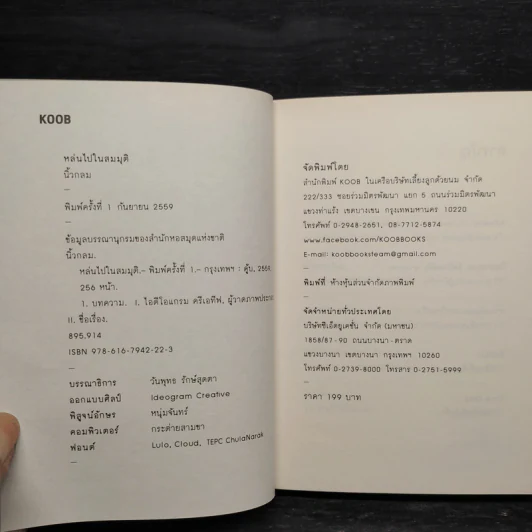 KOOB
หล่นไปในสมมุติ
นิ้วกลม
—
พิมพ์ครั้งที่ 1 กันยายน 2559
—
ข้อมูลบรรณานุกรมของสำนักหอสมุดแห่งชาติ
นิ้วกลม.
หล่นไปในสมมุติ.- พิมพ์ครั้งที่ 1.- กรุงเทพฯ : ตู้น, 2559.
256 หน้า.
1. บทความ. I. ไอดีโอแกรม ครีเอทีฟ, ผู้วาดภาพประกอบ
II. ชื่อเรื่อง.
895.914
ISBN 978-616-7942-22-3
—
บรรณาธิการ วันพุทธ รักษ์สุตตา
ออกแบบศิลป์ Ideogram Creative
พิสูจน์อักษร หนุ่มจันทร์
คอมพิวเตอร์ กระต่ายสามขา
ฟอนต์ Lulo, Cloud, TEPC ChulaNarak
—
จัดพิมพ์โดย
สำนักพิมพ์ KOOB ในเครือบริษัทเลี้ยงลูกด้วยนม จำกัด
222/333 ซอยร่วมมิตรพัฒนา แยก 5 ถนนร่วมมิตรพัฒนา
แขวงท่าแร้ง เขตบางเขน กรุงเทพมหานคร 10220
โทรศัพท์ 0-2948-2651, 08-7712-5874
www.facebook.com/KOOBBOOKS
E-mail: koobbooksteam@gmail.com
—
พิมพ์ที่ ห้างหุ้นส่วนจำกัดภาพพิมพ์
—
จัดจำหน่ายทั่วประเทศโดย
บริษัทซีเอ็ดยูเคชั่น จำกัด (มหาชน)
1858/87-90 ถนนบางนา-ตราด
แขวงบางนา เขตบางนา กรุงเทพฯ 10260
โทรศัพท์ 0-2739-8000 โทรสาร 0-2751-5999
—
ราคา 199 บาท